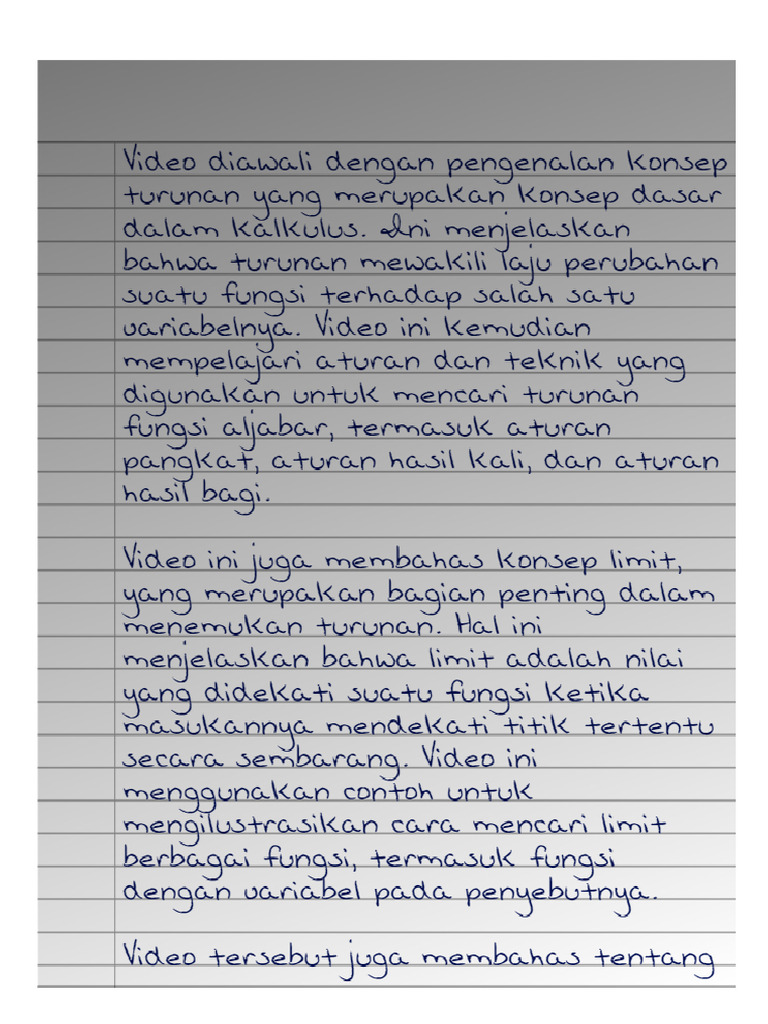 Video diawali dengan pengenalan konsep
turunan yang merupakan konsep dasar
dalam kalkulus. Ini menjelaskan
bahwa turunan mewakili laju perubahan
suatu fungsi terhadap salah satu
variabelnya. Video ini kemudian
mempelajari aturan dan teknik yang
digunakan untuk mencari turunan
fungsi aljabar, termasuk aturan
pangkat, aturan hasil kali, dan aturan
hasil bagi.

Video ini juga membahas konsep limit,
yang merupakan bagian penting dalam
menemukan turunan. Hal ini
menjelaskan bahwa limit adalah nilai
yang didekati suatu fungsi ketika
masukannya mendekati titik tertentu
secara sembarang. Video ini
menggunakan contoh untuk
mengilustrasikan cara mencari limit
berbagai fungsi, termasuk fungsi
dengan variabel pada penyebutnya.

Video tersebut juga membahas tentang